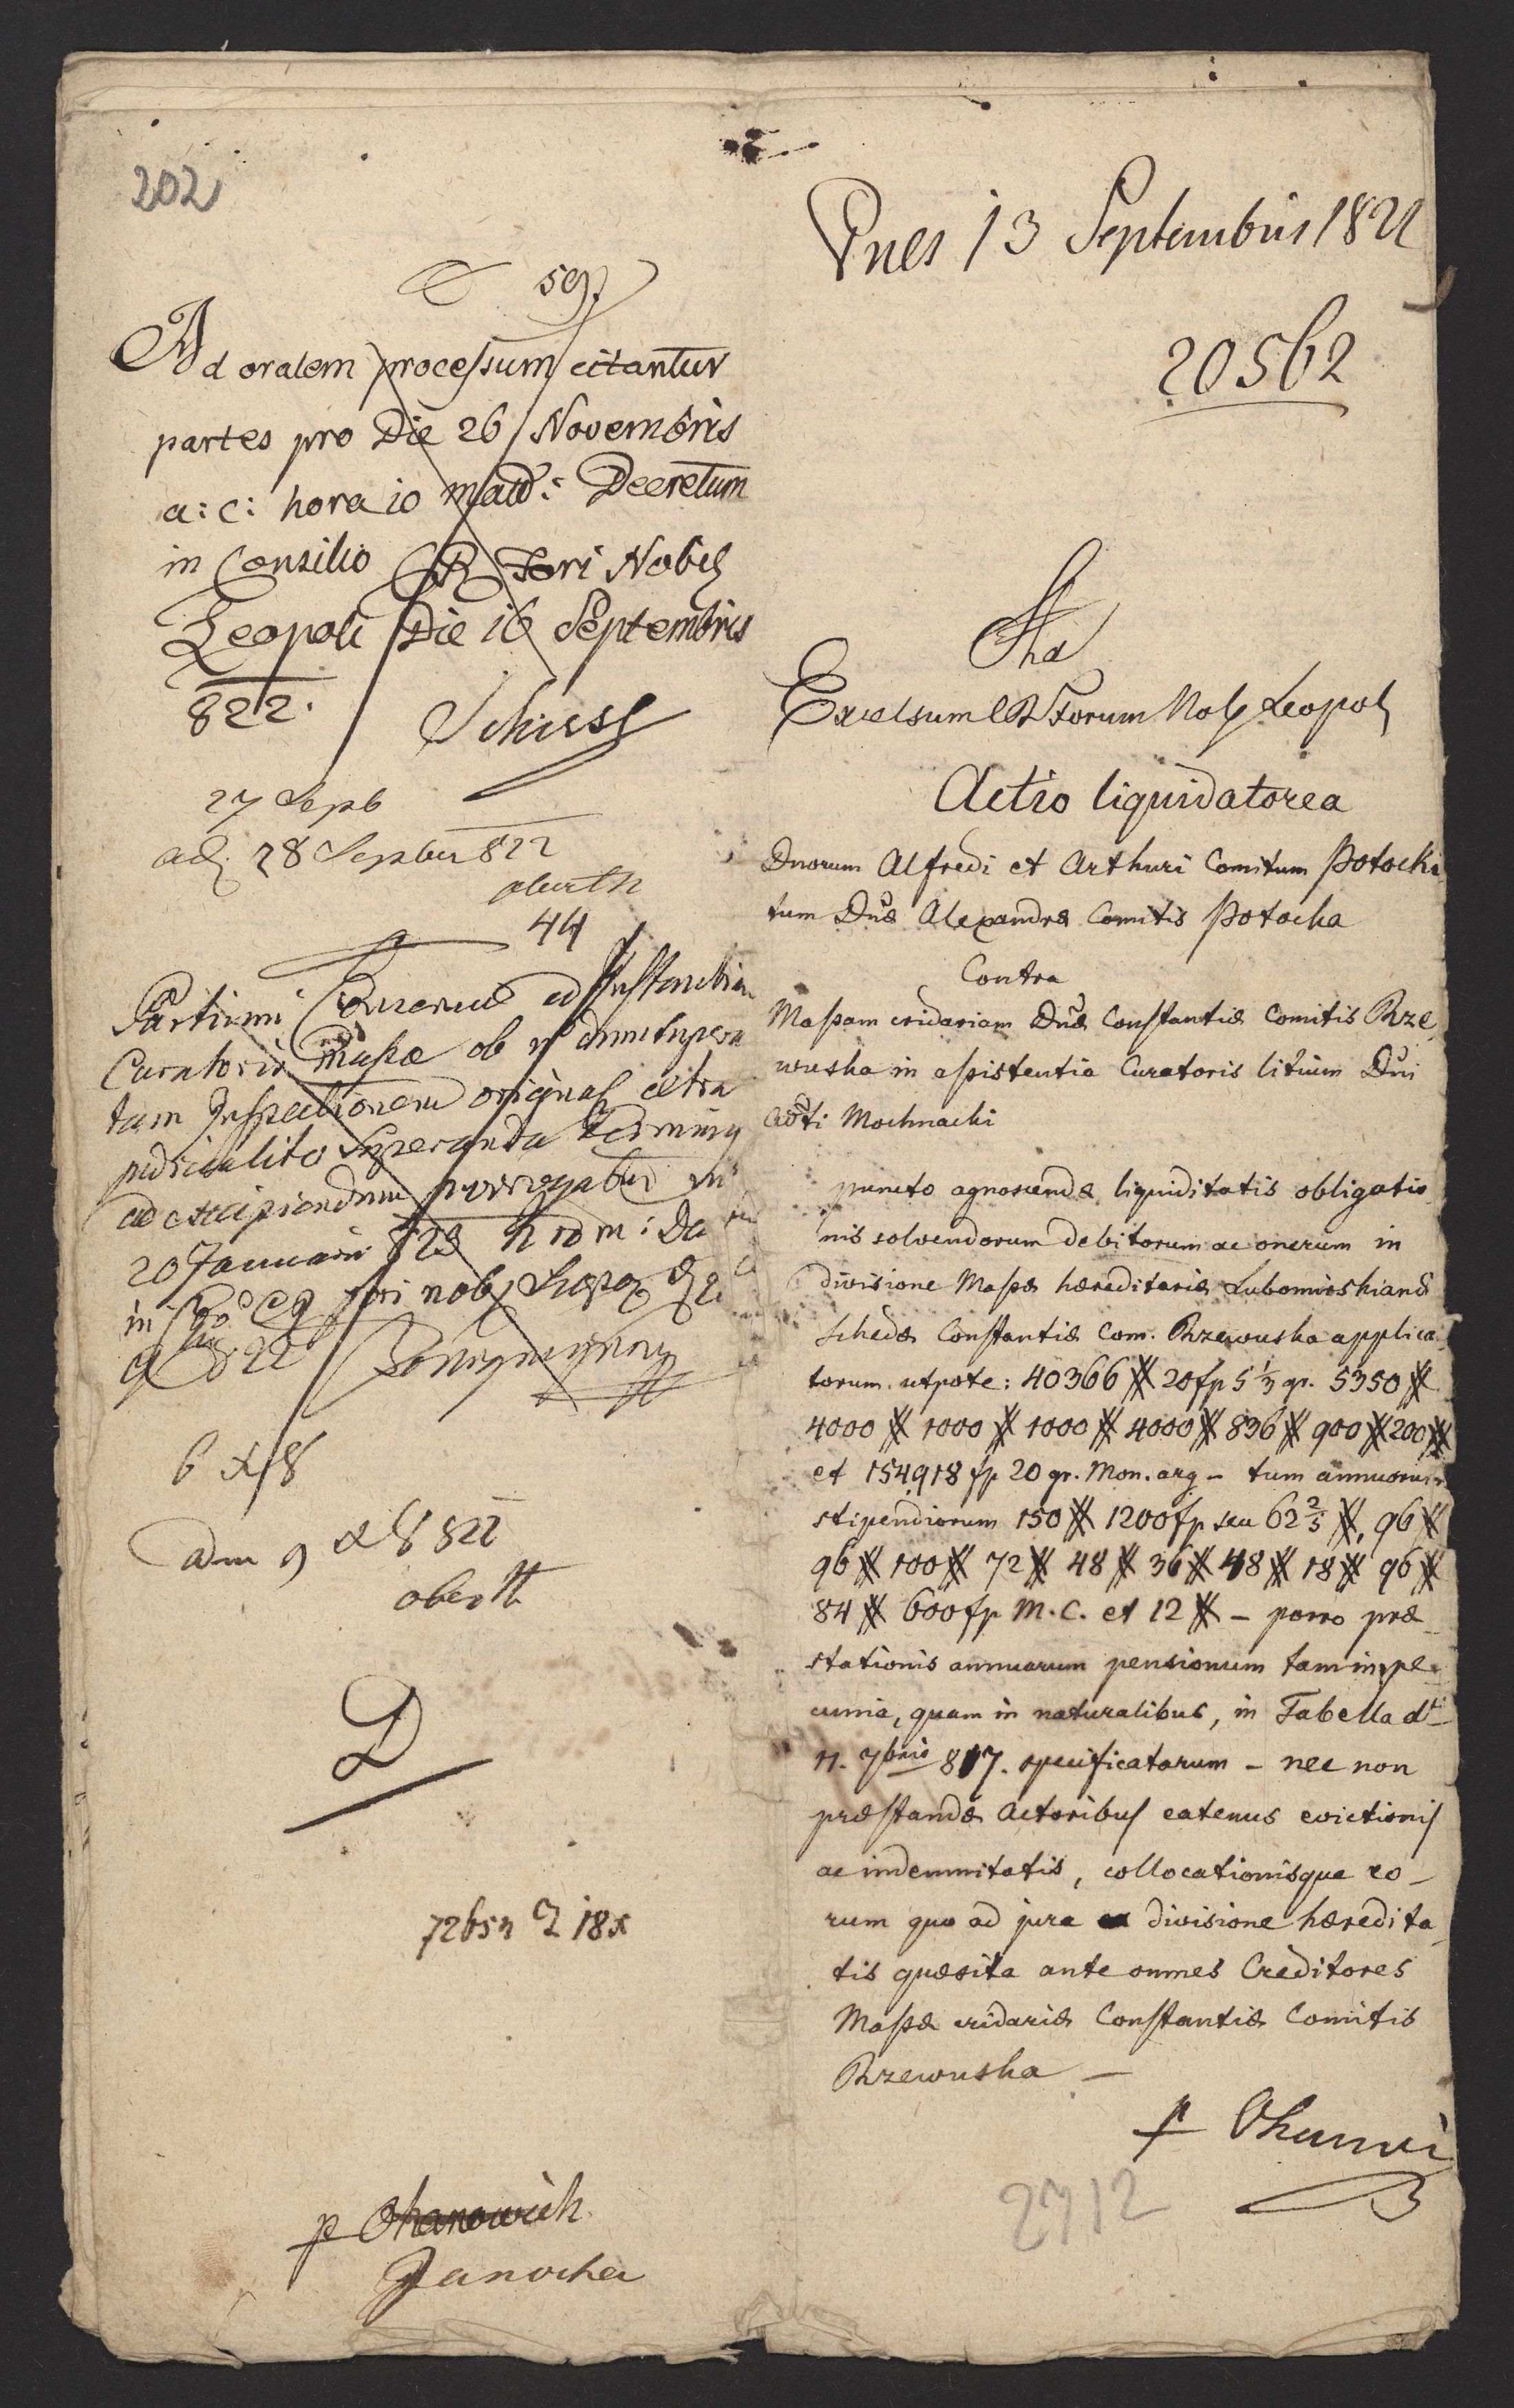 202
597
Ad oralem processum citantur
partes pro Die 26 Novembris
a: c: hora 10 mattd: Decretum
in Consilio CR Fori Nobil
Leopoli Die 16 Septembris
822.
Schiessl
27 Septb
ad 28 Septber 822
oberth
44
Partium
Curatoris massæ ob
tam Inspectionem original extra
judicialito Termin
ad excipiendum prorogatur in
20 Januarii 823 h 10 m: Da
in fori nob Leopol
9 822
6 X/8
adm 9 X 8 822
oberth
D
p Ohanowich
Janocha
Pnes 13 Septembris 1822
20562
Ad
Excelsum CR Forum Nob Leopol
Actio liquidatorea
Dnorum Alfredi et Arthuri Comitum Potocki
tum Dnæ Alexandræ Comitis Potocka
Contra
Massam cridariam Dnæ Constantiæ Comitis Rze
wuska in assistentia Curatoris litium Dni
Adti Mochnacki
puncto agnoscendæ liquiditatis obligatio
nis solvendorum debitorum ac onerum in
divisione Massæ hæreditariæ Lubomirskianæ
schedæ Constantiæ Com. Rzewuska applica
torum. utpote: 40366 # 20 fp 5 1/3 gr. 5350 #
4000 # 1000 # 1000 # 4000 # 836 # 900 # 200 #
et 154918 fp 20 gr. Mon. arg - tum annuorum
stipendiorum 150 # 1200 fp seu 62 2/5 #, 96 #
96 # 100 # 72 # 48 # 36 # 48 # 18 # 96 #
84 # 600 fp M. C. et 12 # - porro præ
stationis annuarum pensionum tam in pe
cunia, quam in naturalibus, in Tabella dt
11. 7bris 817. specificatarum - nec non
præstandæ Actoribus eatenus evictionis
ac indemnitatis, collocationisque eo-
rum quo ad jura ex divisione hæredita
tis quæsita ante omnes Creditores
Massæ cridariæ Constantiæ Comitis
Rzewuska -
2712